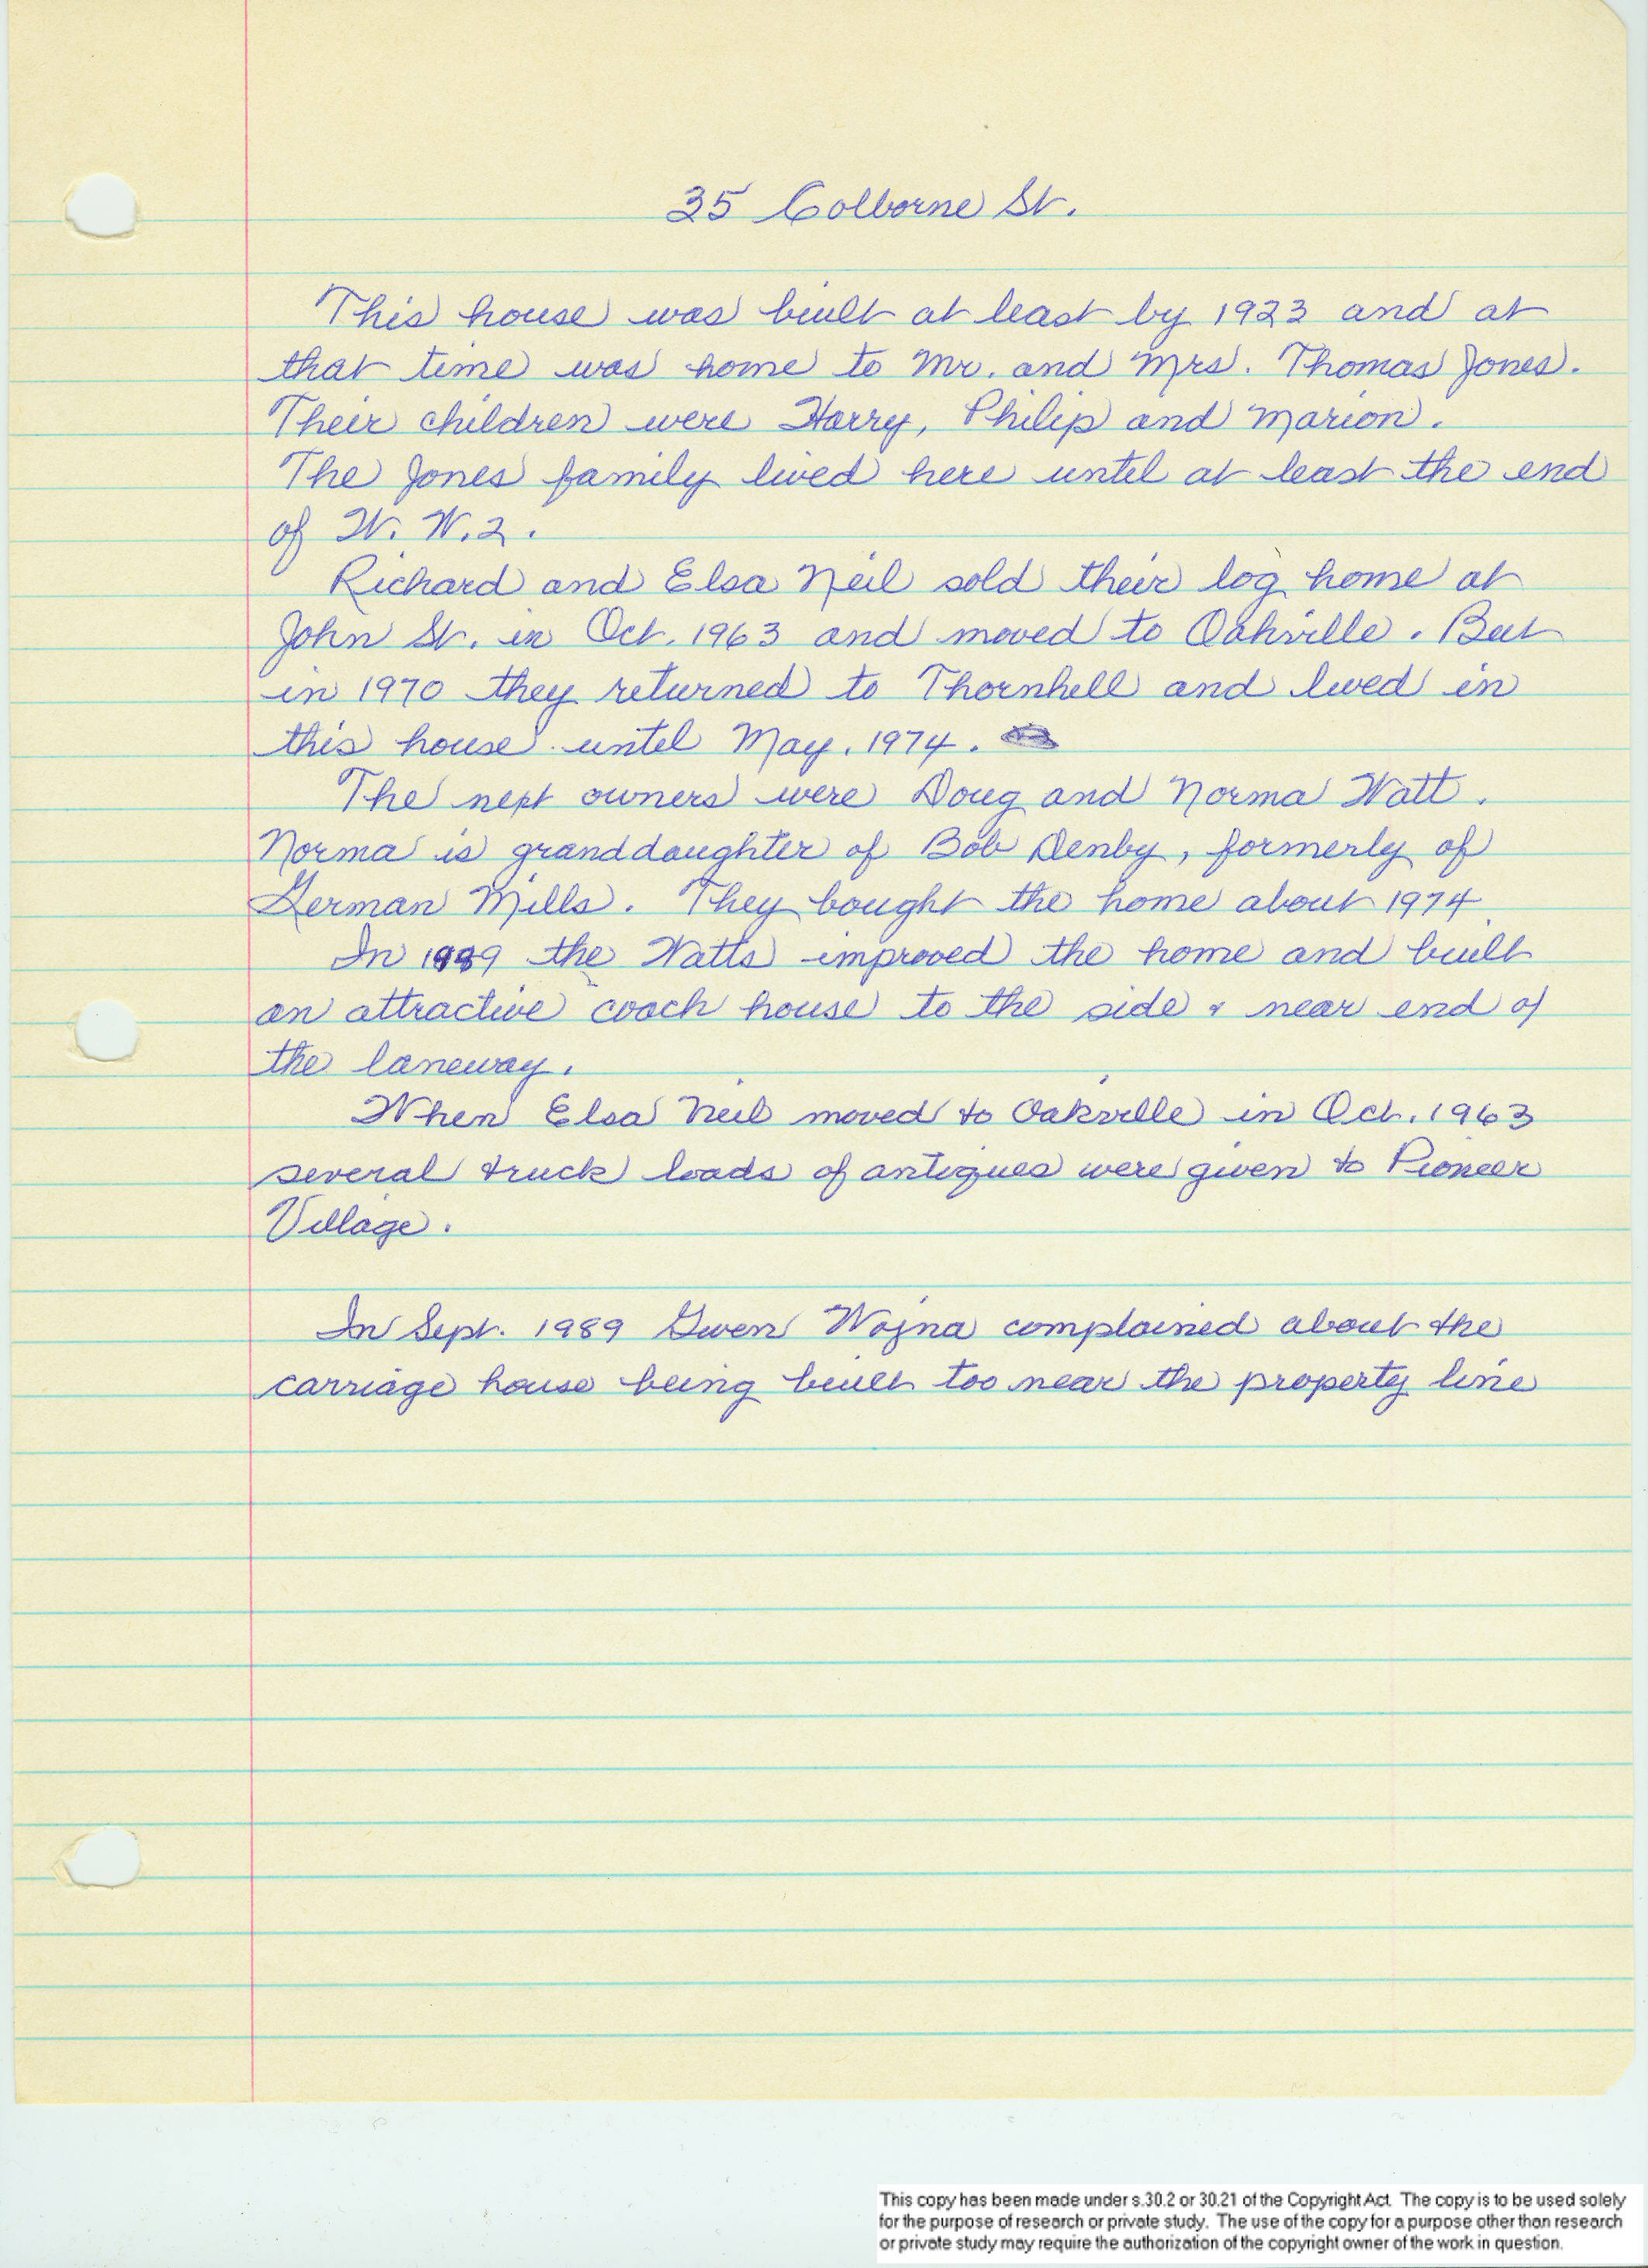 35 Colborne St.
This house was built at least by 1923 and at
that time was home to Mr. and Mrs. Thomas Jones.
Their children were Harry, Philip and Marion.
The Jones family lived here until at least the end
of W. W. 2.
Richard and Elsa Neil sold their log home at
John St. in Oct. 1963 and moved to Oakville. But
in 1970 they returned to Thornhill and lived in
this house until May, 1974.
The next owners were Doug and Norma Watt.
Norma is granddaughter of Bob Denby, formerly of
German Mills. They bought the home about 1974.
In 1989 the Watts improved the home and built
an attractive coach house to the side & near end of
the laneway.
When Elsa Neil moved to Oakville in Oct. 1963
several truck loads of antiques were given to Pioneer
Village.
In Sept. 1989 Gwen Wojna complained about the
carriage house being built too near the property line
This copy has been made under s.30.2 or 30.21 of the Copyright Act. The copy is to be used solely
for the purpose of research or private study. The use of the copy for a purpose other than research
or private study may require the authorization of the copyright owner of the work in question.